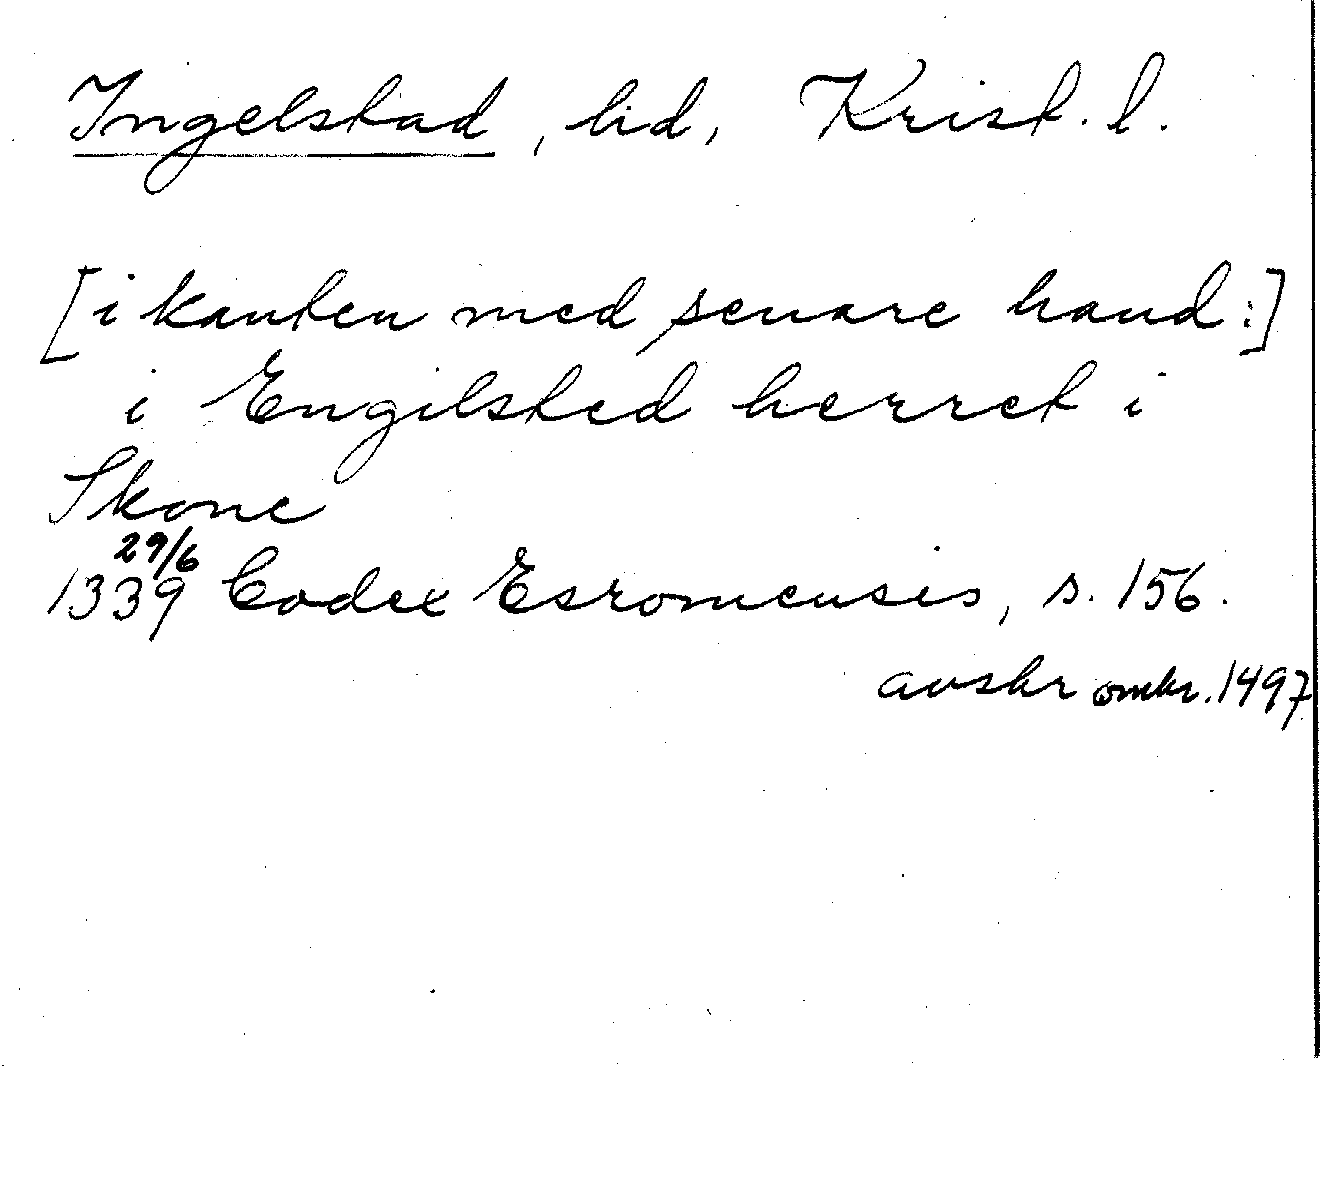 Ingelstad, hd, Krist. l.
[i kanten med senare hand:]
i Engilsted herret i
Skone
29/6
1339 Codex Esromensis, s. 156.
avskr omkr. 1497